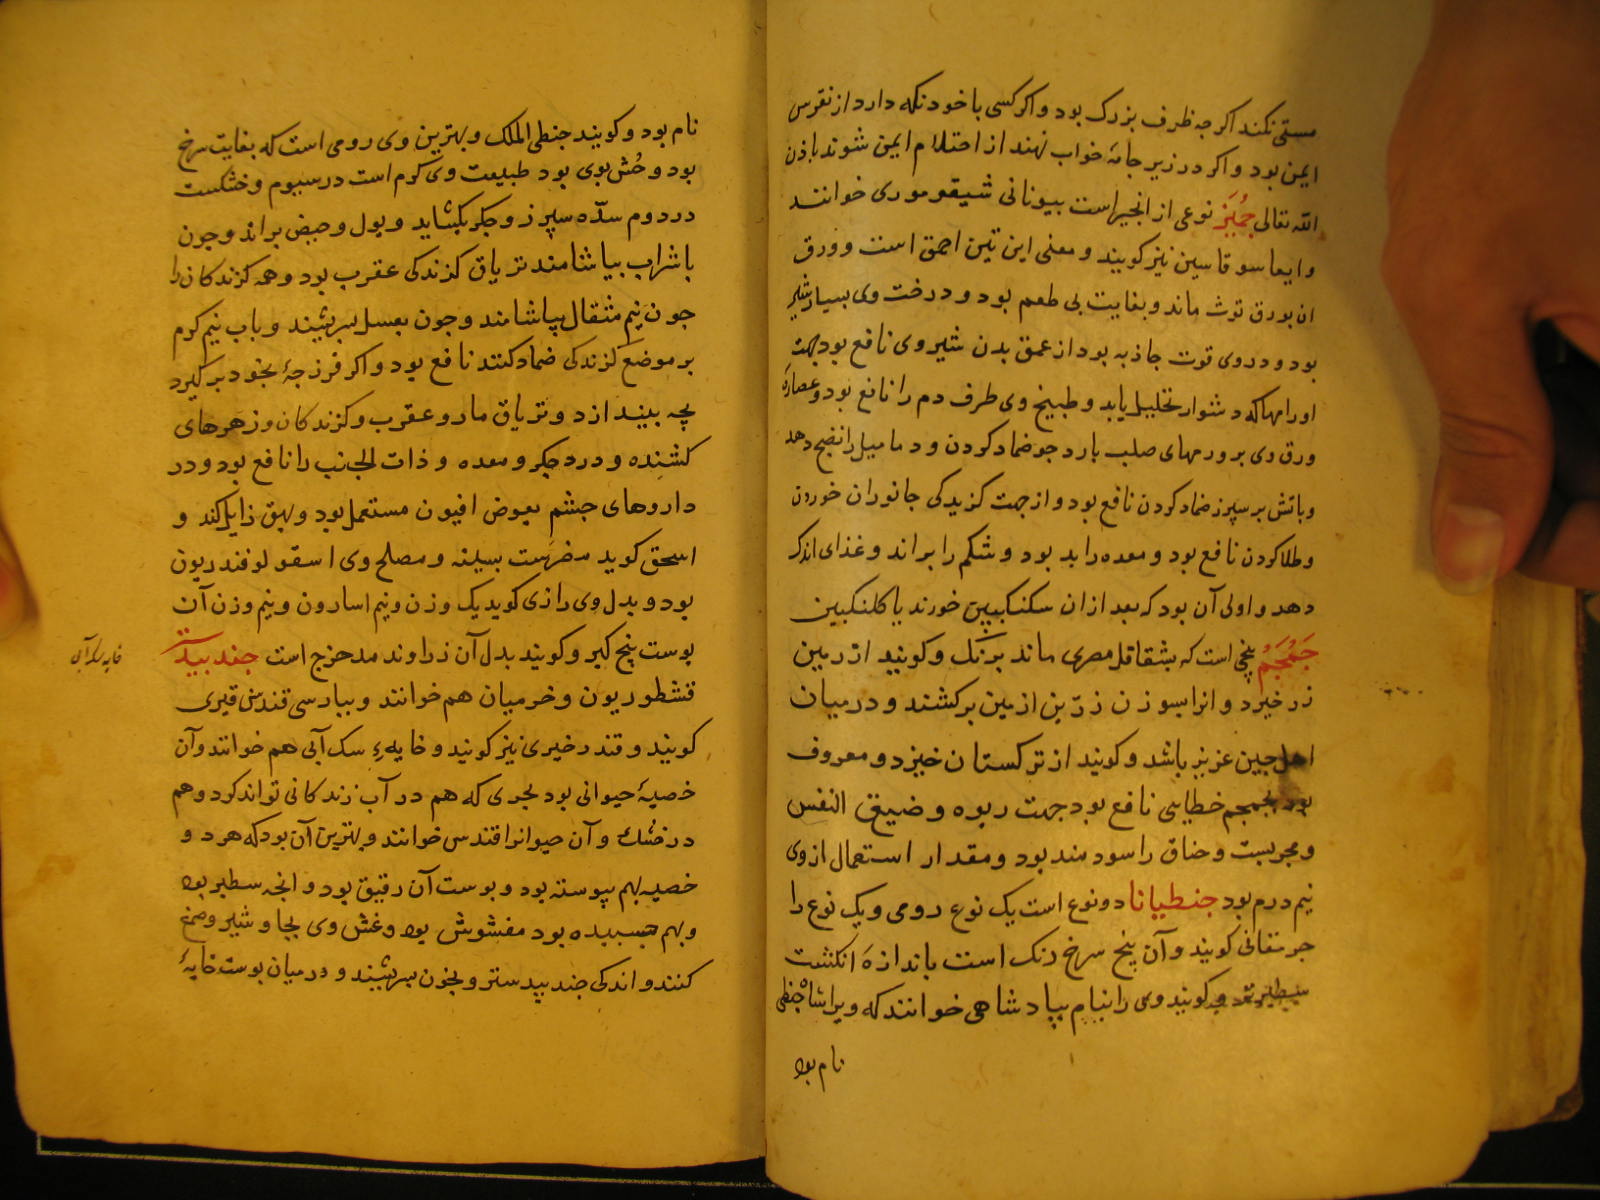 مستی نکند اکرچه ظرف بزرک بود و اکر کسی با خود نکه دارد از نقرس
ایمن بود و اکر در زیر جامهٔ خواب نهند از احتلام ایمن شوند باذن
الله تعالی جمیز نوعی از انجیر است بیونانی شیقوموری خوانند
وایعا سوقاسین نیز کویند و معنی این تین احمق است و ورق
ان بورق توث ماند و بغایت بی طعم بود و درخت وی بسیار شیر
بود و در وی قوت جاذبه بود از عمق بدن شیر وی نافع بود جهت
اورامها که دشوار تحلیل یابد و طبیخ وی طرف دم را نافع بود و عصاره
ورق وی بر ورمهای صلب بارد جو ضماد کردن و دمامیل را نضج دهد
و باتش بر سپرز ضماد کردن نافع بود و از جهت کزیدکی جانوران خوردن
و طلا کردن نافع بود و معده را بد بود و شکم را براند و غذای اندک
دهد و اولی آن بود که بعد از ان سکنکبین خورند یا کلنکبین
جمجم بیخی است که بشقاقل مصری ماند برنک و کویند از زمین
زر خیزد و انرا بسوزن زرین از مین برکشند و در میان
اهل چین عزیز باشد و کویند از ترکستان خیزد و معروف
بود بجمجم خطایی نافع بود جهت ربوه و ضیق النفس
و مجربست و خناق را سودمند بود و مقدار استعمال از وی
نیم درم بود جنطیانا دو نوع است یک نوع رومی و یک نوع را
جرمقانی کویند و آن بیخ سرخ رنک است باندازهٔ انکشت
سطبرتر و کویند وی را بنام پادشاهی خوانند که ویرا شاه جنطی
نام بود
نام بود و کویند جنطی الملک و بهترین وی رومی است که بغایت سرخ
بود و خُش بوی بود طبیعت وی کرم است در سیوم و خشکست
در دوم سدّه سپرز و جکر بکشاید و بول و حیض براند و چون
با شراب بیاشامند تریاق کزندکی عقرب بود و همه کزندکان را
جون نیم مثقال بیاشامند و جون بعسل بسرشند و باب نیم کرم
بر موضع کزندکی ضماد کنند نافع بود و اکر فرزجهٔ بخود برکیرد
بچه بیندازد و تریاق مار و عقرب و کزندکان و زهرهای
کشنده و درد جکر و معده و ذات الجنب را نافع بود و در
داروهای جشم بعوض افیون مستعمل بود و بهق زایل کند و
اسحق کوید مضرست بسینه و مصلح وی اسقولوفندریون
بود و بدل وی رازی کوید یک وزن و نیم اسارون و نیم وزن آن
پوست بیخ کبر و کویند بدل آن زراوند مدحرج است جندبیدستر
قشطوریون و خرمیان هم خوانند و بپارسی قندس قیری
کویند و قندر خیری نیز کویند و خایهء سک آبی هم خوانند و آن
خصیهٔ حیوانی بود بحری که هم در آب زندکانی تواند کرد و هم
در خشک و آن حیوانرا قندس خوانند و بهترین آن بود که هر دو
خصیه بهم پیوسته بود و پوست آن رقیق بود و انجه سطبر بود
و بهم جسبیده بود مغشوش بود و غش وی بجاوشیر و صمغ
کنند و اندکی جندبیدستر و بخون بسرشند و در میان پوست خایهٔ
خایه سک آبی